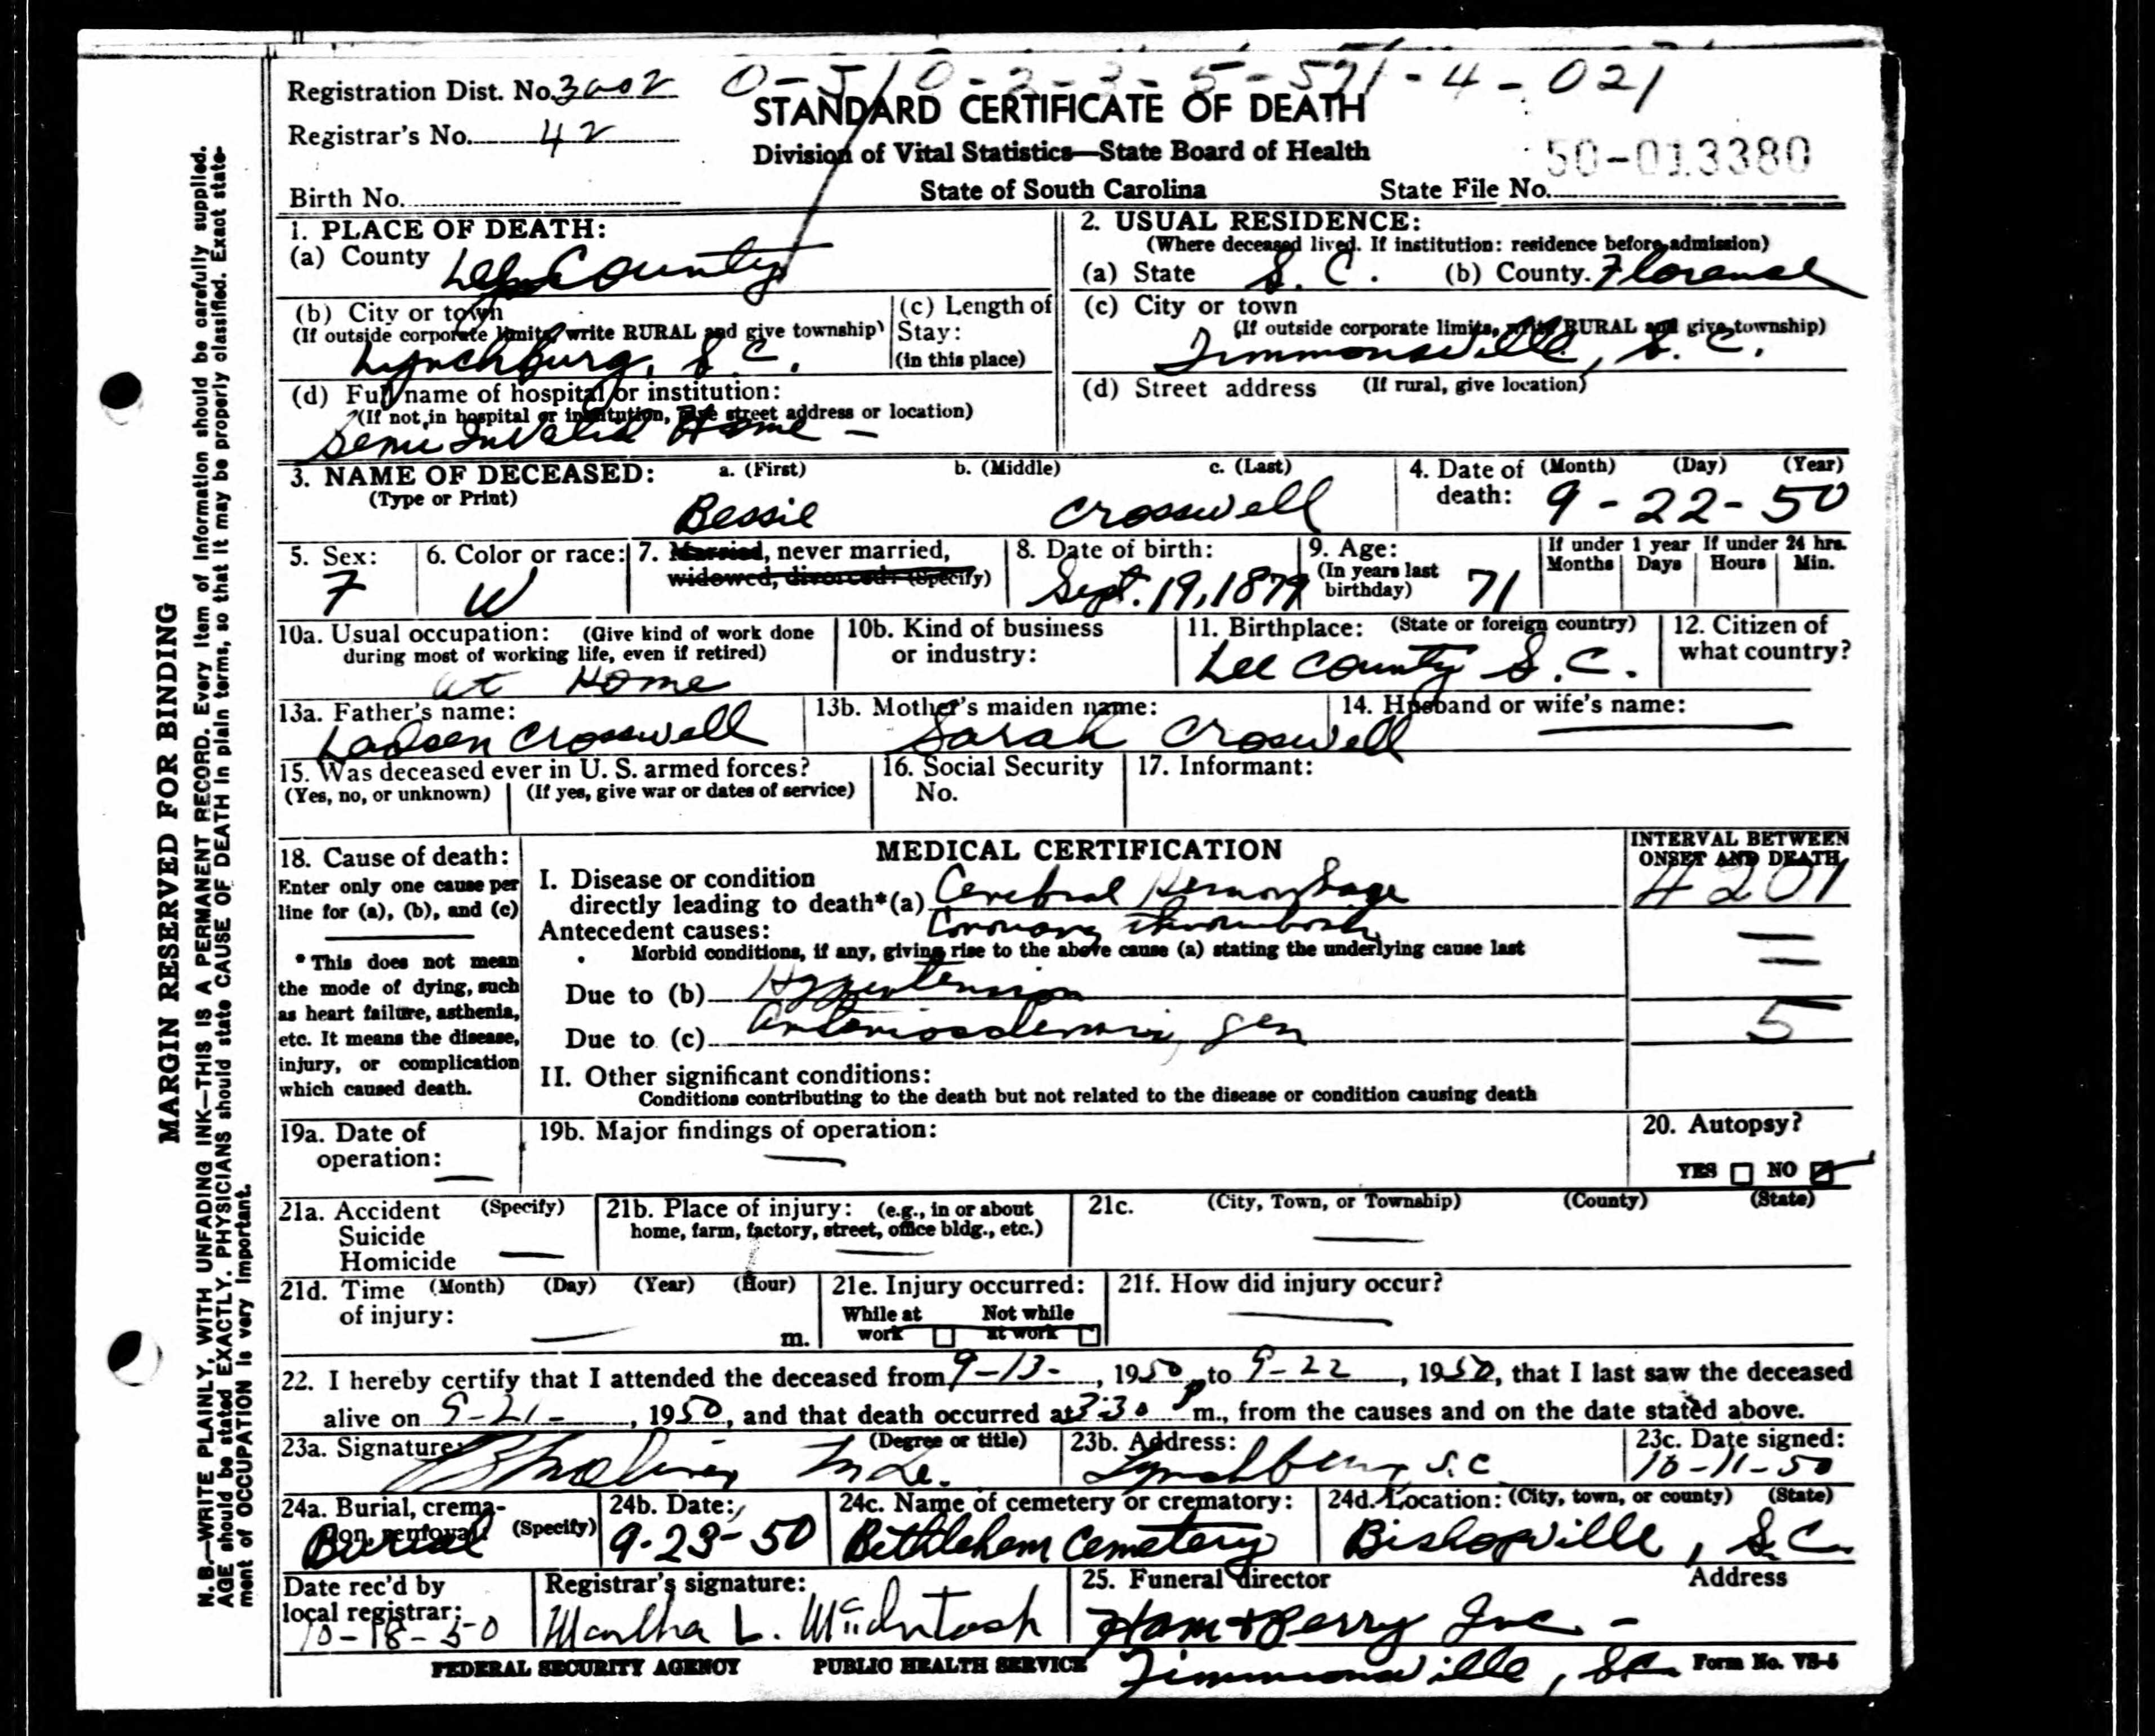 Registration Dist. No. 3002
0-5/0-2-3-5-571-4-021
STANDARD CERTIFICATE OF DEATH
Registrar's No. 42
Division of Vital Statistics—State Board of Health
50-013380
Birth No.
State of South Carolina
State File No.
1. PLACE OF DEATH:
(a) County Lee County
(b) City or town
(If outside corporate limits, write RURAL and give township)
Lynchburg, S. C.
(c) Length of
Stay:
(in this place)
(d) Full name of hospital or institution:
(If not in hospital or institution, give street address or location)
Semi Invalid Home —
2. USUAL RESIDENCE:
(Where deceased lived. If institution: residence before admission)
(a) State S. C. (b) County. Florence
(c) City or town
(If outside corporate limits, write RURAL and give township)
Timmonsville, S. C.
(d) Street address (If rural, give location)
3. NAME OF DECEASED: a. (First) b. (Middle) c. (Last)
(Type or Print)
Bessie Crosswell
4. Date of (Month) (Day) (Year)
death: 9-22-50
5. Sex:
F
6. Color or race:
W
7. Married, never married,
widowed, divorced: (Specify)
8. Date of birth:
Sept. 19, 1879
9. Age:
(In years last
birthday) 71
If under 1 year If under 24 hrs.
Months Days Hours Min.
10a. Usual occupation: (Give kind of work done
during most of working life, even if retired)
at Home
10b. Kind of business
or industry:
11. Birthplace: (State or foreign country)
Lee County S. C.
12. Citizen of
what country?
13a. Father's name:
Ladsen Crosswell
13b. Mother's maiden name:
Sarah Croswell
14. Husband or wife's name:
15. Was deceased ever in U. S. armed forces?
(Yes, no, or unknown) (If yes, give war or dates of service)
16. Social Security
No.
17. Informant:
18. Cause of death:
Enter only one cause per
line for (a), (b), and (c)
* This does not mean
the mode of dying, such
as heart failure, asthenia,
etc. It means the disease,
injury, or complication
which caused death.
MEDICAL CERTIFICATION
I. Disease or condition
directly leading to death*(a) Cerebral Hemorrhage
Coronary thrombosis
Antecedent causes:
Morbid conditions, if any, giving rise to the above cause (a) stating the underlying cause last
Due to (b) Hypertension
Due to (c) Arteriosclerosis, gen
II. Other significant conditions:
Conditions contributing to the death but not related to the disease or condition causing death
INTERVAL BETWEEN
ONSET AND DEATH
4201
5
19a. Date of
operation: —
19b. Major findings of operation:
—
20. Autopsy?
YES NO
21a. Accident (Specify)
Suicide
Homicide —
21b. Place of injury: (e.g., in or about
home, farm, factory, street, office bldg., etc.)
21c. (City, Town, or Township) (County) (State)
21d. Time (Month) (Day) (Year) (Hour)
of injury: — m.
21e. Injury occurred:
While at Not while
work at work
21f. How did injury occur?
22. I hereby certify that I attended the deceased from 9-13-, 1950, to 9-22, 1950, that I last saw the deceased
alive on 9-21-, 1950, and that death occurred at 3:30 P m., from the causes and on the date stated above.
23a. Signature: (Degree or title)
23b. Address:
Lynchburg, S. C.
23c. Date signed:
10-11-50
24a. Burial, crema-
tion, removal: (Specify)
Burial
24b. Date:
9-23-50
24c. Name of cemetery or crematory:
Bethlehem Cemetery
24d. Location: (City, town, or county) (State)
Bishopville, S. C.
Date rec'd by
local registrar:
10-18-50
Registrar's signature:
Martha L. McIntosh
25. Funeral director Address
Ham & Perry Inc. -
Timmonsville, S.C.
FEDERAL SECURITY AGENCY PUBLIC HEALTH SERVICE Form No. VS-5
MARGIN RESERVED FOR BINDING
N. B.—WRITE PLAINLY, WITH UNFADING INK—THIS IS A PERMANENT RECORD. Every item of information should be carefully supplied.
AGE should be stated EXACTLY. PHYSICIANS should state CAUSE OF DEATH in plain terms, so that it may be properly classified. Exact state-
ment of OCCUPATION is very important.